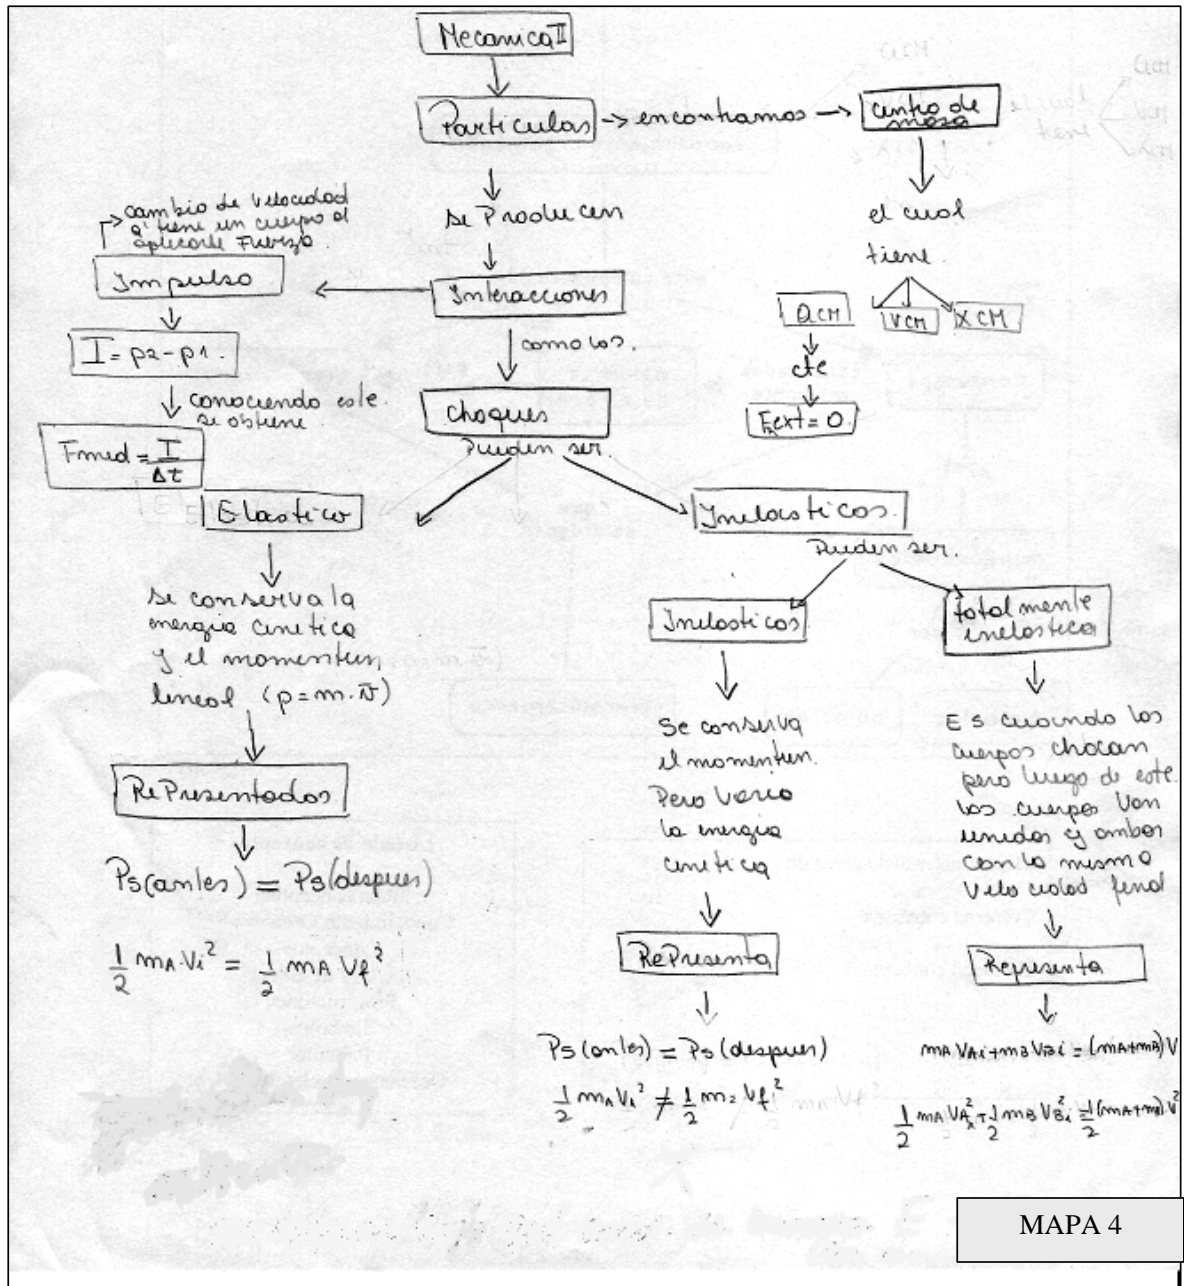 Mecanica II
Particulas → encontramos → centro de masa
se Producen
el cual
tiene
aCM
VCM
XCM
cte
Fext = 0
cambio de velocidad
q' tiene un cuerpo al
aplicarle Fuerza
Interacciones
Impulso
I = p2 - p1
conociendo este
se obtiene
Fmed = I / Δt
como los
choques
Pueden ser
Elastico
se conserva la
energia cinetica
y el momentun
lineal (p = m · v̄)
RePresentados
Ps(antes) = Ps(despues)
1/2 mA Vi² = 1/2 mA Vf²
Inelasticos
Pueden ser.
Inelasticos
Se conserva
el momentun
Pero varia
la energia
cinetica
RePresenta
Ps (antes) = Ps (despues)
totalmente
inelastica
Es cuando los
cuerpos chocan
pero luego de este
los cuerpos van
unidos y ambos
con la misma
velocidad final
Representa
mA VAi + mB VBi = (mA+mB) V
MAPA 4